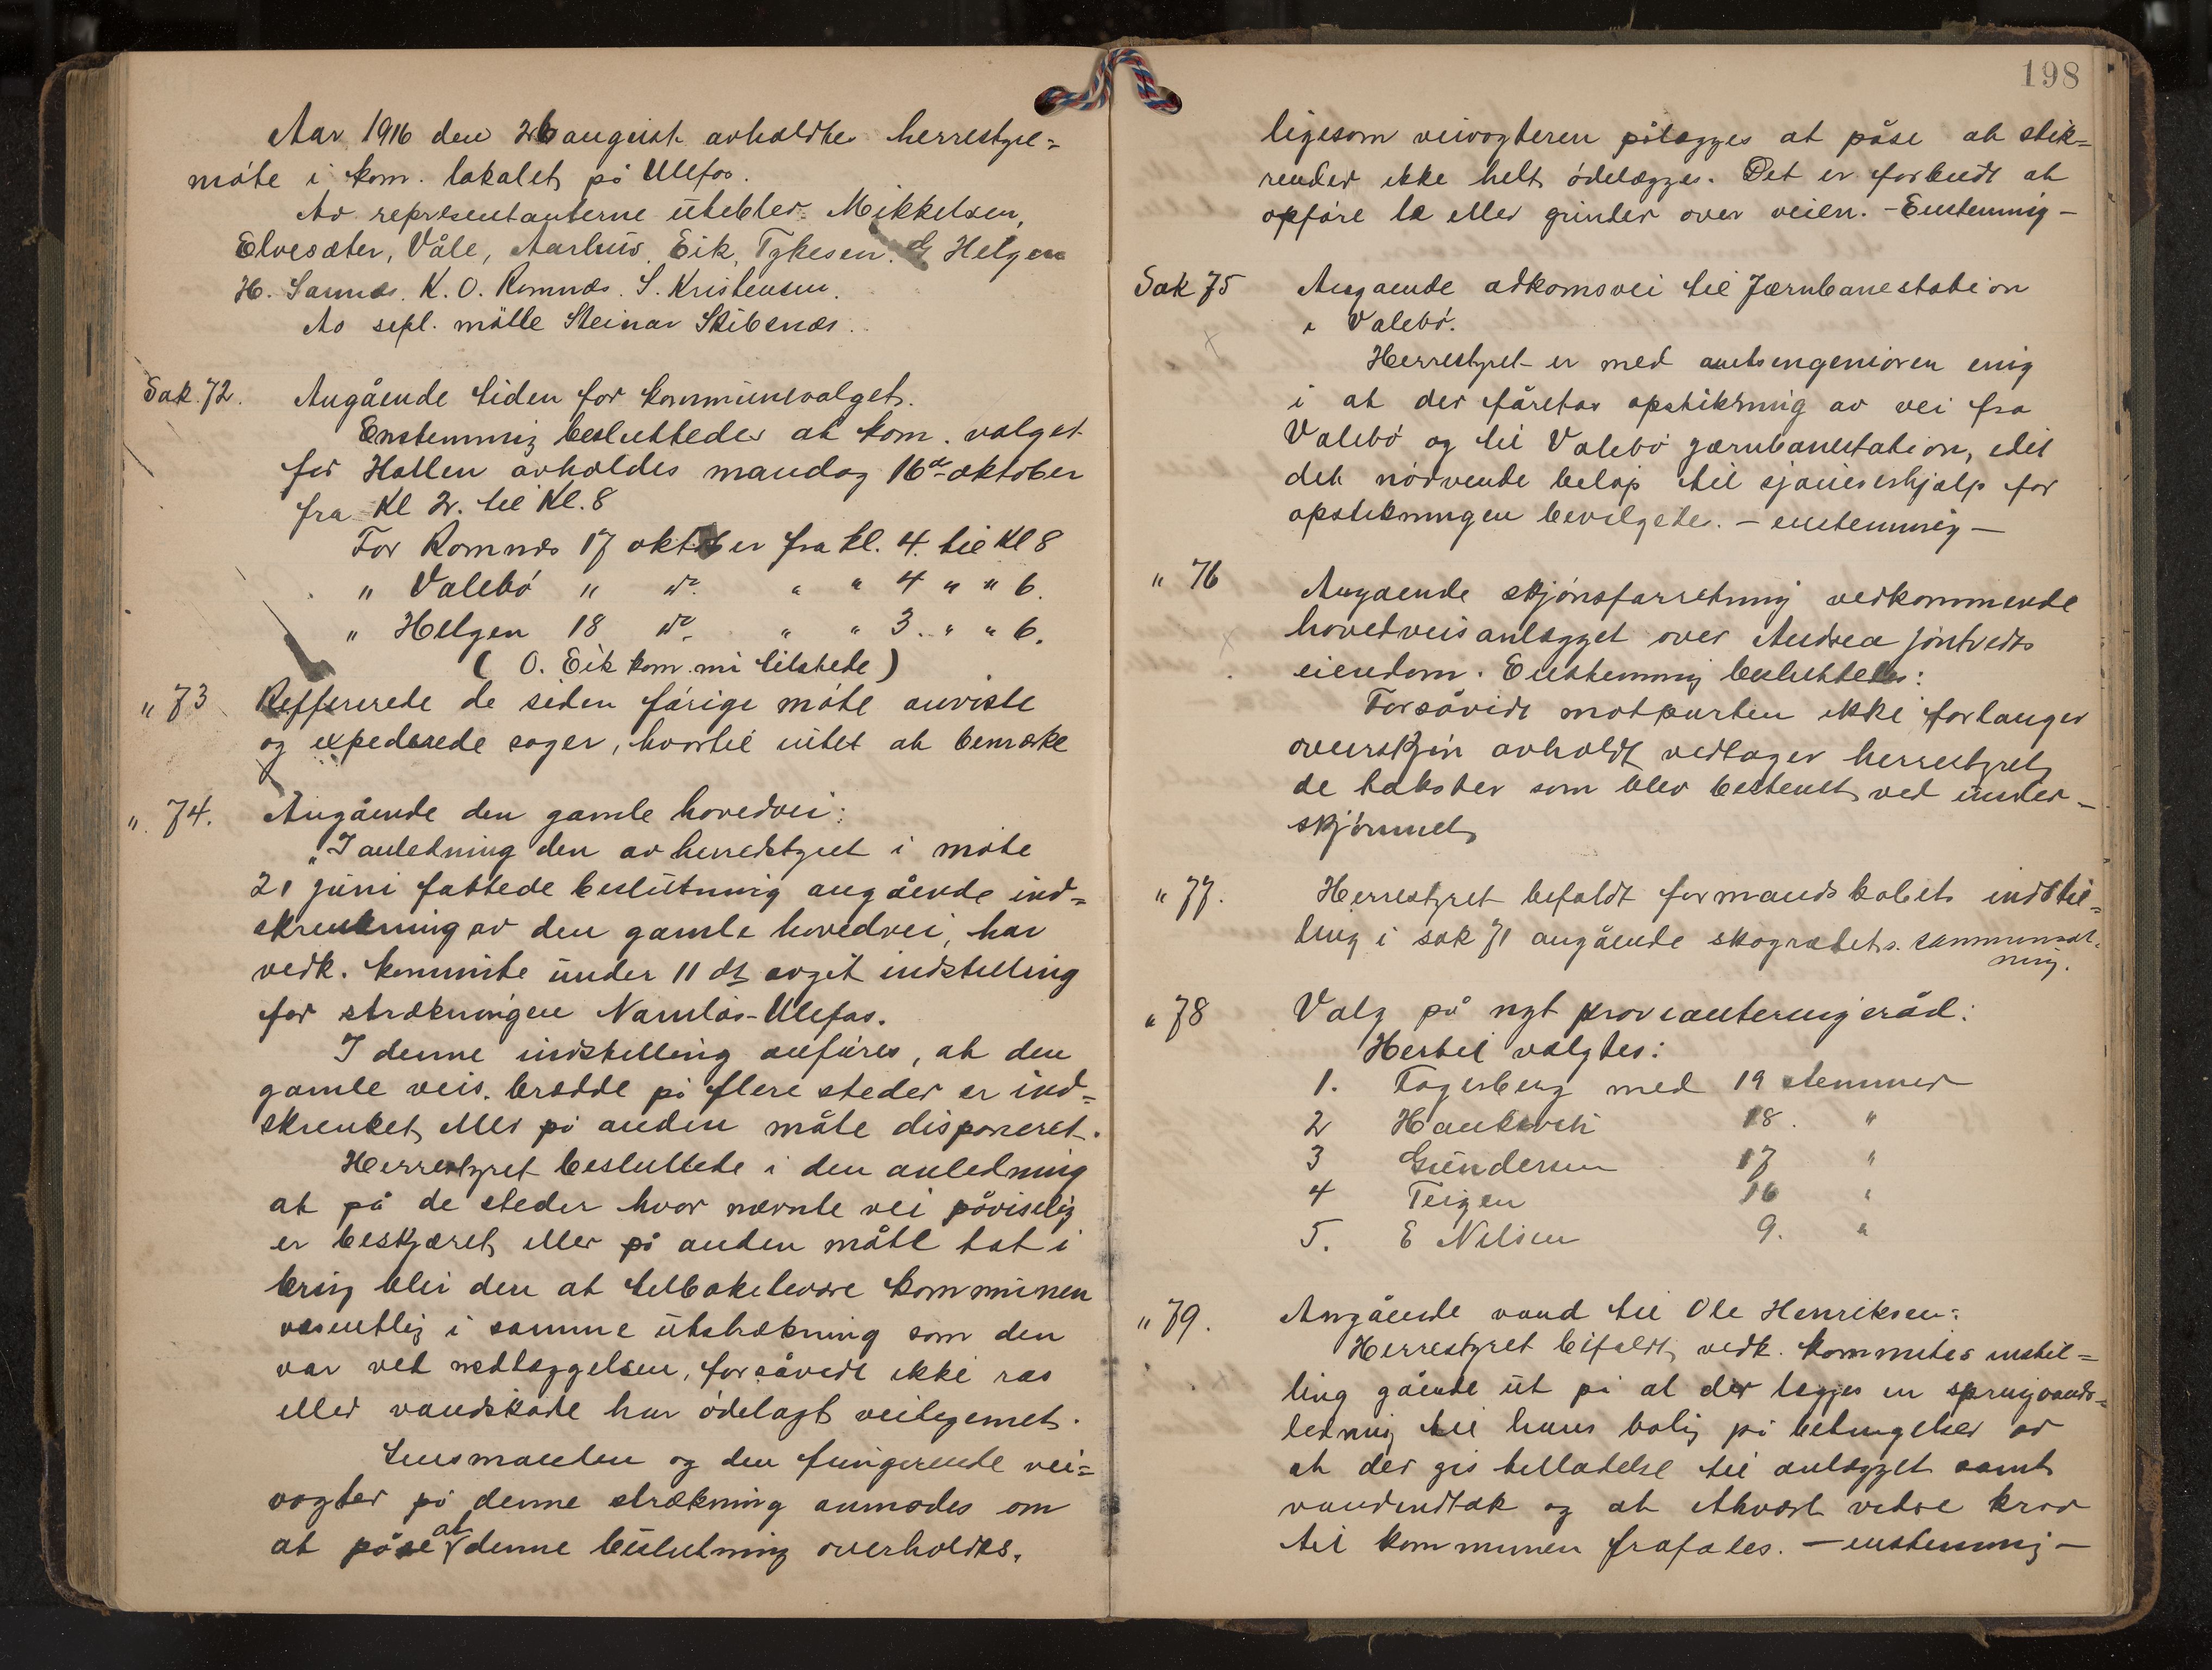 Aar 1916 den 26 august avholdtes herrestyre=
møte i kom. lokalet på Ulefos.
Av representanterne utebler Mikkelsen,
Elvesæter, Våle, Aarhus. Eik, Tykesen. G Helgen
H. Sannæs. K. O. Romnæs. S. Kristensen.
Av supl. møtte Steinar Skibsnæs.
Sak. 72. Angående tiden for kommunevalget.
Enstemmig besluttedes at kom. valget
for Hollen avholdes mandag 16de oktober
fra Kl 2. til Kl. 8
For Romnæs 17 oktober fra kl. 4. til Kl 8
" Valebø " do. " " 4 " " 6.
" Helgen 18 do. " " 3. " " 6.
( O. Eik kom. nu tilstede )
" 73 Reffererede de siden forige møte anviste
og expederede sager, hvortil intet at bemærke
". 74. Angående den gamle hovedvei:
"I anledning den av herredstyret i møte
21 juni fattede beslutning angående ind=
skrenkning av den gamle hovedvei, har
vedk. kommite under 11 ds avgit indstilling
for strækningen Namløs-Ulefos.
I denne indstelling anføres, at den
gamle veis. brædde på flere steder er ind=
skrenket eller på anden måte disponeret.
Herrestyret besluttede i den anledning
at på de steder hvor nævnte vei påviselig
er beskjæret eller på anden måte tat i
brug blir den at tilbakelevere kommunen
væsentlig i samme utstrækning som den
var ved nedlæggelsen, forsåvidt ikke ras
eller vandskade har ødelagt veilegemet.
Lensmanden og den fungerende vei=
vogter på denne strækning anmodes om
at påse at denne beslutning overholdes.
198
ligesom veivogteren pålægges at påse at stik=
render ikke helt ødelægges. Det er forbudt at
opføre le eller grinder over veien. - Enstemmig -
Sak 75 Angaende adkomsvei til Jærnbanestation
i Valebø.
Herrestyret er med amtsingeniøren enig
i at der foretas opstikning av vei fra
Valebø og til Valebø jærnbanestation, idet
det nødvende beløp til sjauerhjælp for
opstikningen bevilgedes. - enstemmig -
" 76 Angaende skjønsforretning vedkommende
hovedveisanlægget over Andrea Jøntvedts
eiendom. Enstemmig besluttedes:
Forsåvidt motparten ikke forlanger
overskjøn avholdt vedtager herrestyret
de takster som blev bestemt ved under-
skjønnet,
" 77. Herrestyret bifaldt formandskabets indstil=
ling i sak 71 angående skogrådets. sammensæt-
ning.
" 78 Valg på nyt provianteringsråd:
Hertil valgtes:
1. Fagerberg med 19 stemmer
2 Haukvik 18. "
3 Gundersen 17 "
4 Teigen 16 "
5. E Nilsen 9. "
" 79. Angående vand til Ole Henriksen:
Herrestyret bifaldt, vedk. kommites instil=
ling gående ut på at der lægges en springvands=
ledning til hans bolig på betingelser av
at der gis tilladelse til anlægget samt
vandindtak og at ethvert videre krav
til kommunen frafales. - enstemmig -